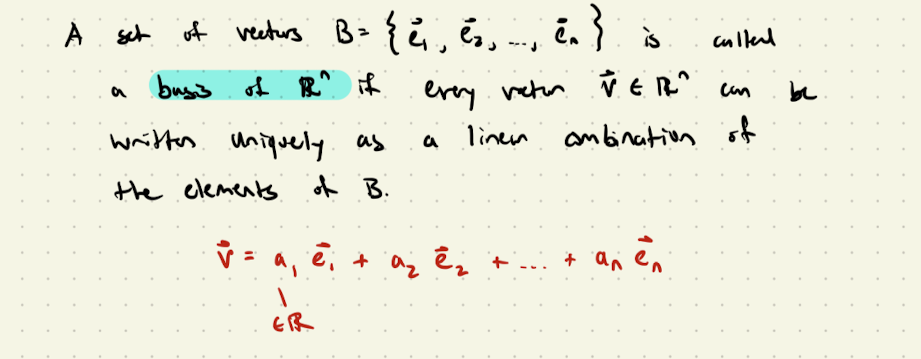 A set of vectors B = { e⃗₁, e⃗₂, ..., e⃗ₙ } is called
a basis of ℝⁿ if every vector v⃗ ∈ ℝⁿ can be
written uniquely as a linear combination of
the elements of B.
v⃗ = a₁ e⃗₁ + a₂ e⃗₂ + ... + aₙ e⃗ₙ
∈ℝ